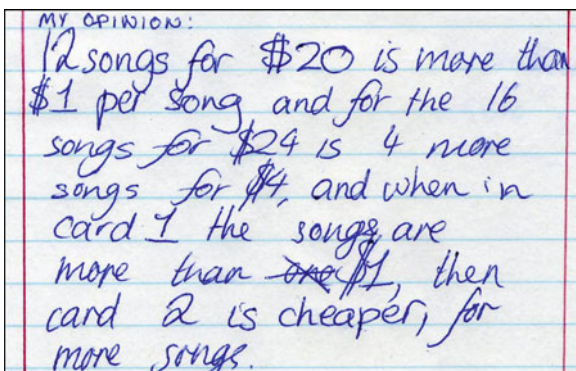 MY OPINION:
12 songs for $20 is more than
$1 per song and for the 16
songs for $24 is 4 more
songs for $4, and when in
card 1 the songs are
more than one $1, then
card 2 is cheaper, for
more songs.